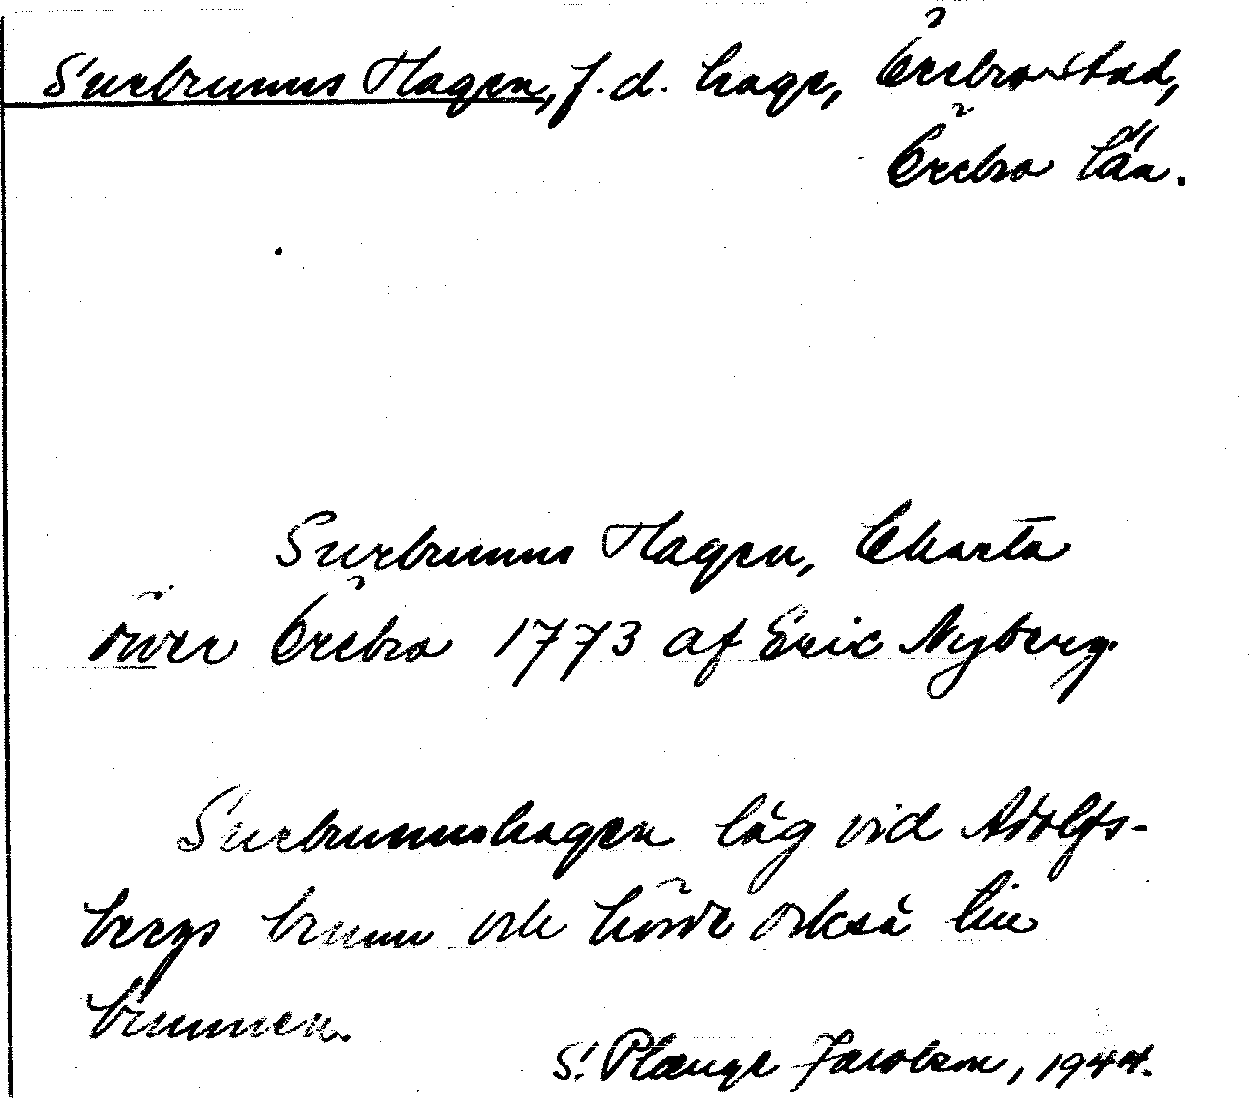 Surbrunns Hagen, f.d. hage, Örebro stad,
Örebro län.
Surbrunns Hagen, Charta
över Örebro 1773 af Eric Nyberg.
Surbrunnshagen låg vid Adolfs-
bergs brunn och hörde också till
brunnen.
S. Plænge Jacobson, 1944.